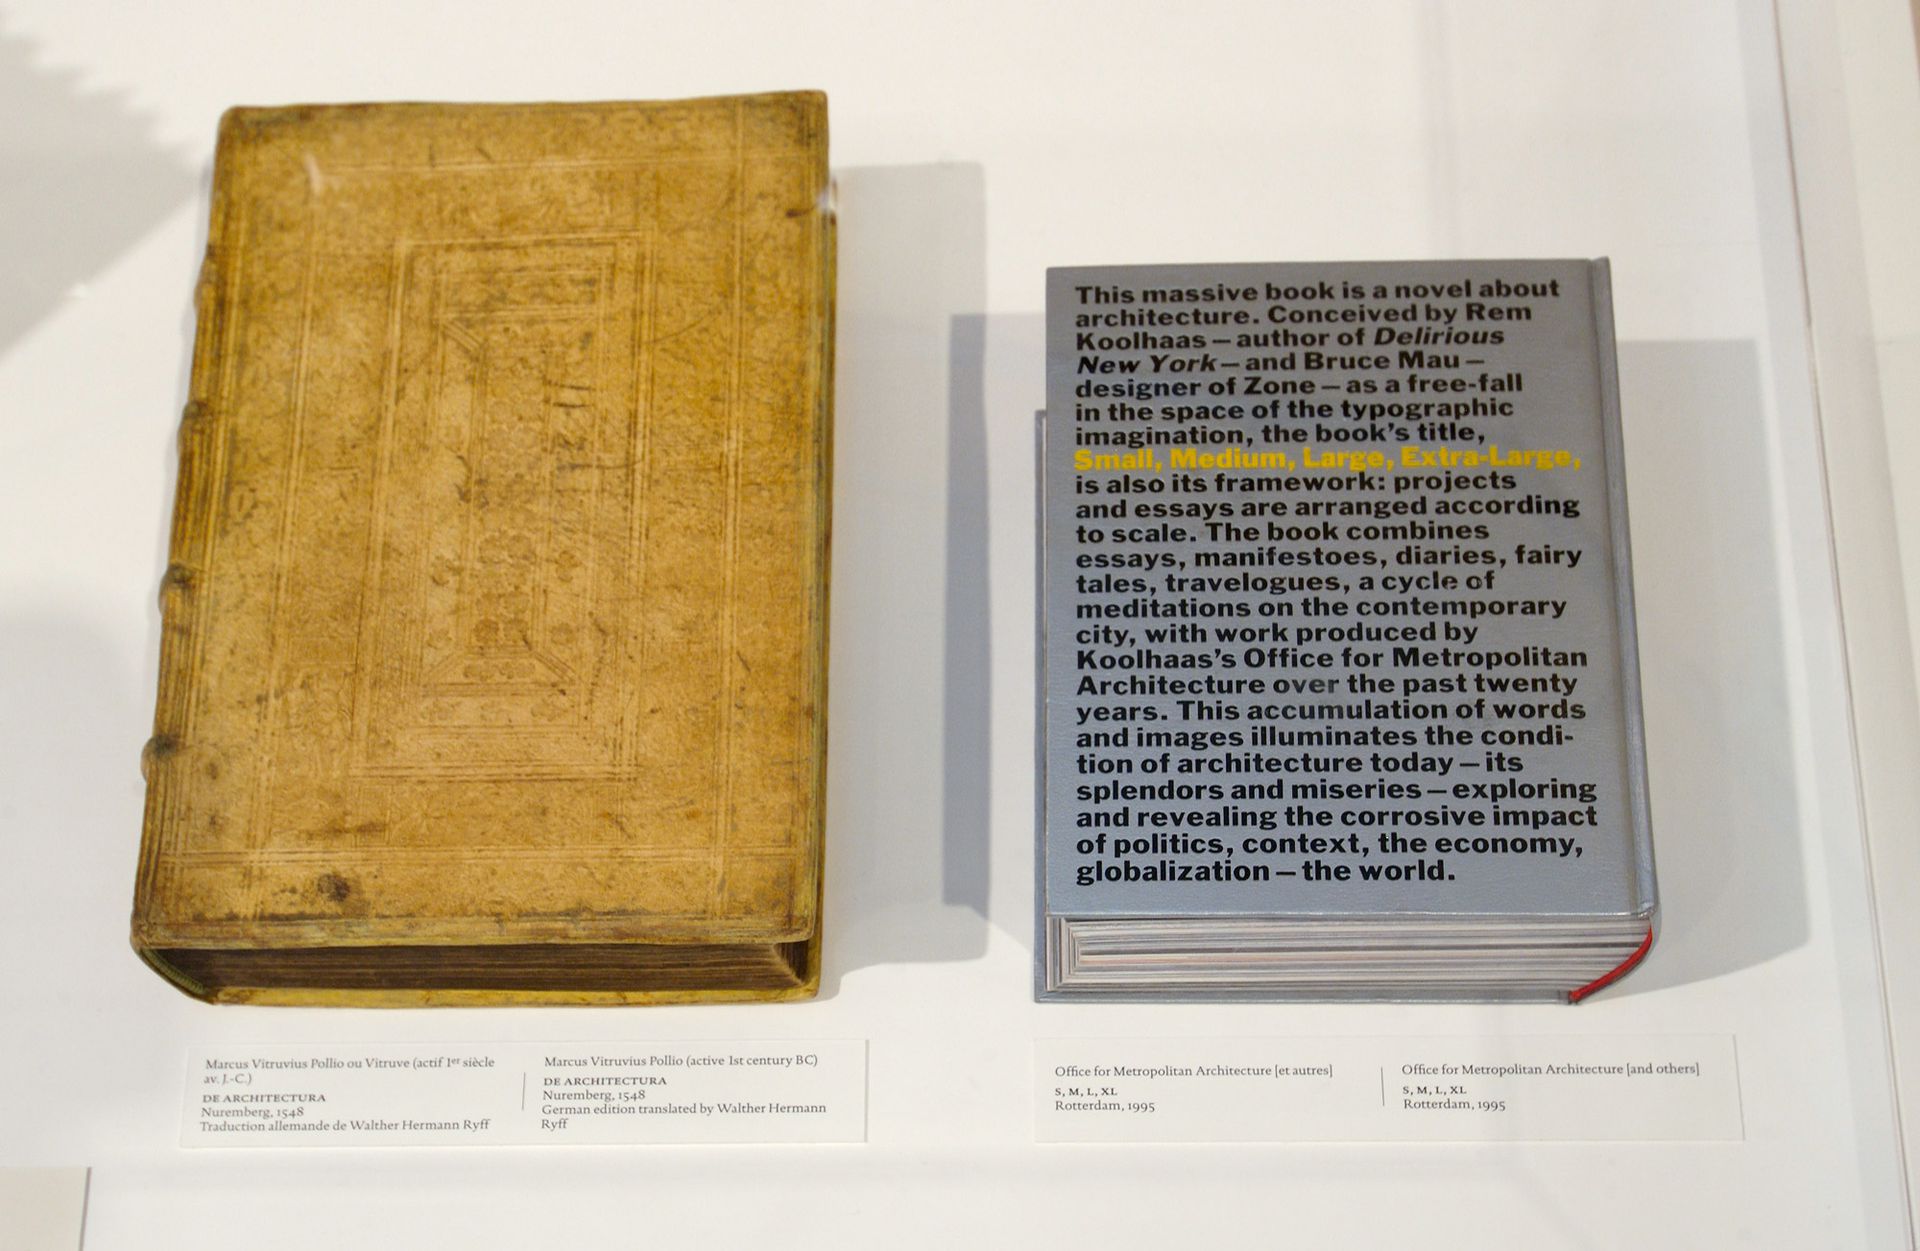 This massive book is a novel about
architecture. Conceived by Rem
Koolhaas — author of Delirious
New York — and Bruce Mau —
designer of Zone — as a free-fall
in the space of the typographic
imagination, the book's title,
Small, Medium, Large, Extra-Large,
is also its framework: projects
and essays are arranged according
to scale. The book combines
essays, manifestoes, diaries, fairy
tales, travelogues, a cycle of
meditations on the contemporary
city, with work produced by
Koolhaas's Office for Metropolitan
Architecture over the past twenty
years. This accumulation of words
and images illuminates the condi-
tion of architecture today — its
splendors and miseries — exploring
and revealing the corrosive impact
of politics, context, the economy,
globalization — the world.
Marcus Vitruvius Pollio ou Vitruve (actif 1er siècle
av. J.-C.)
DE ARCHITECTURA
Nuremberg, 1548
Traduction allemande de Walther Hermann Ryff
Marcus Vitruvius Pollio (active 1st century BC)
DE ARCHITECTURA
Nuremberg, 1548
German edition translated by Walther Hermann
Ryff
Office for Metropolitan Architecture [et autres]
S, M, L, XL
Rotterdam, 1995
Office for Metropolitan Architecture [and others]
S, M, L, XL
Rotterdam, 1995